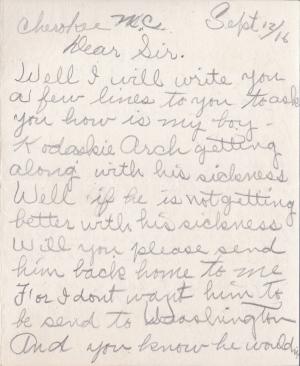 Cherokee N.C.
Sept 12/16
Dear Sir.
Well I will write you
a few lines to you to ask
you how is my boy -
Kodaskie Arch getting
along with his sickness
Well if he is not getting
better with his sickness
Will you please send
him back home to me
For I dont want him to
be send to Washington
And you know he would